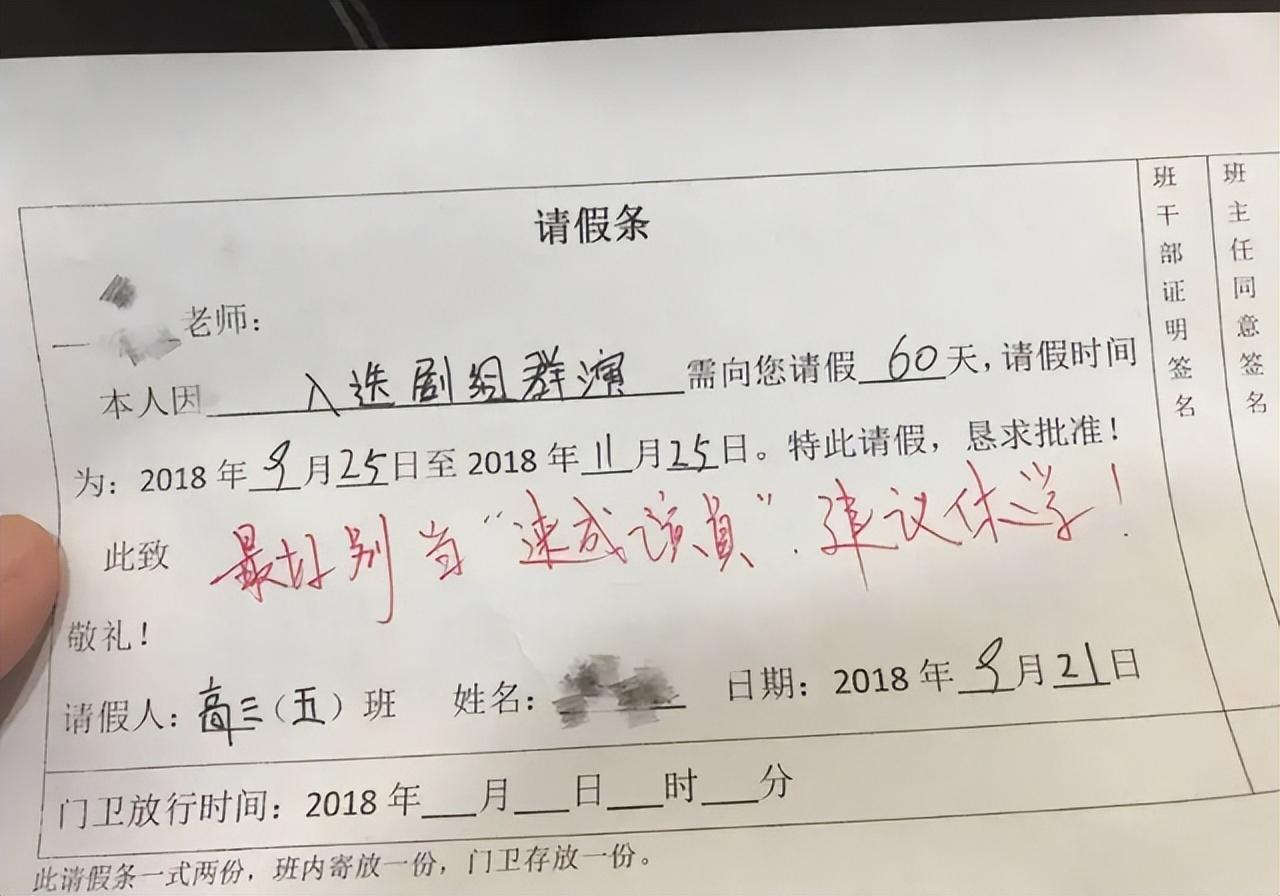 请假条
老师：
本人因入选剧组群演需向您请假60天，请假时间
为：2018年9月25日至2018年11月25日。特此请假，恳求批准！
此致
最好别当“速成演员”.建议休学！
敬礼！
请假人：高三（五）班 姓名： 日期：2018年9月21日
门卫放行时间：2018年___月___日___时___分
此请假条一式两份，班内寄放一份，门卫存放一份。
班干部证明签名
班主任同意签名